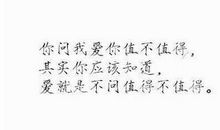 你问我爱你值不值得，
其实你应该知道，
爱就是不问值得不值得。